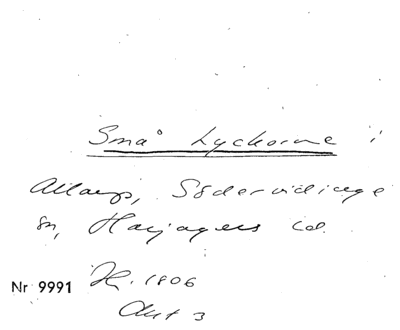 Små Lyckorne i
Allarp, Södervidinge
sn, Harjagers hd.
Nr 9991 1806
Akt 3